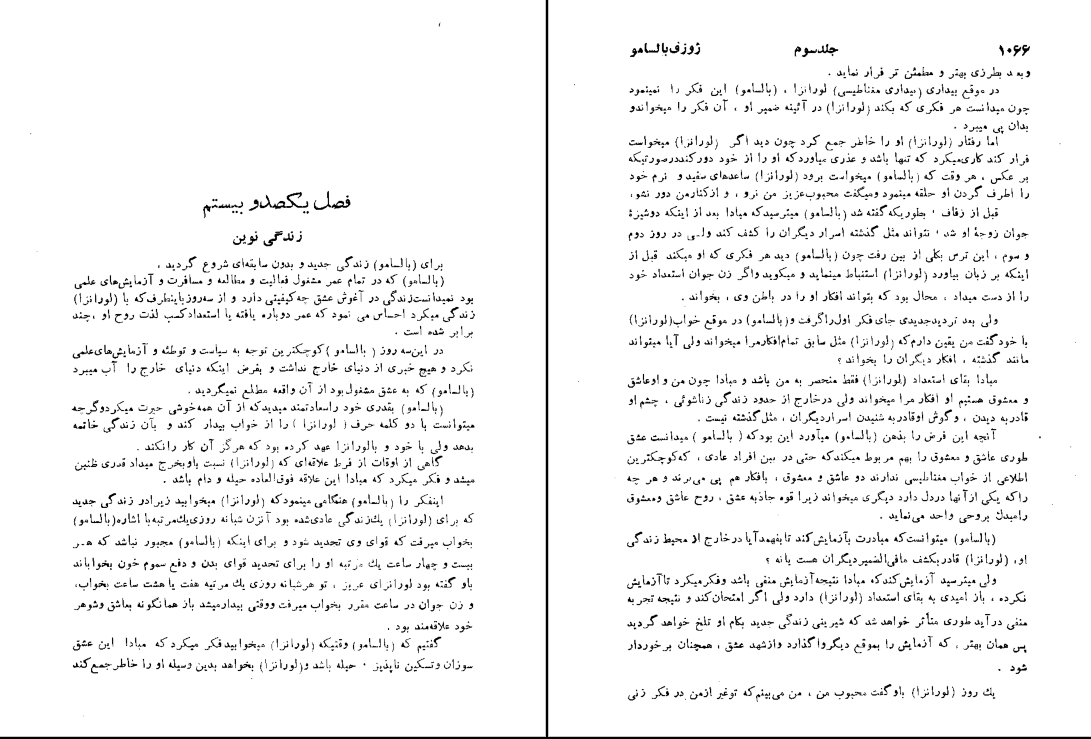 فصل یکصدو بیستم
زندگی نوین
برای (بالسامو) زندگی جدید و بدون سابقه‌ای شروع گردید .
(بالسامو) که در تمام عمر مشغول فعالیت و مطالعه و مسافرت و آزمایش‌های علمی
بود نمیدانست‌زندگی در آغوش عشق چه‌کیفیتی دارد و از سه‌روزباینطرف‌که با (لورانزا)
زندگی میکرد احساس می نمود که عمر دوباره یافته یا استعدادکسب لذت روح او ،چند
برابر شده است .
در این‌سه روز ( بالسامو )کوچکترین توجه به سیاست و توطئه و آزمایش‌های‌علمی
نکرد و هیچ خبری از دنیای خارج نداشت و بفرض اینکه دنیای خارج را آب میبرد
(بالسامو) که به عشق مشغول‌بود از آن واقعه مطلع نمیگردید .
(بالسامو) بقدری خود راسعادتمند میدیدکه از آن همه‌خوشی حیرت میکردوگرچه
میتوانست با دو کلمه حرف ( لورانزا ) را از خواب بیدار کند و بآن زندگی خاتمه
بدهد ولی با خود و بالورانزا عهد کرده بود که هرگز آن کار رانکند .
گاهی از اوقات از فرط علاقه‌ای که (لورانزا) نسبت باوبخرج میداد قدری ظنین
میشد و فکر میکرد که مبادا این علاقه فوق‌العاده حیله و دام باشد .
اینفکر را (بالسامو) هنگامی مینمودکه (لورانزا) میخوابید زیرادر زندگی جدید
که برای (لورانزا) یك‌زندگی عادی‌شده بود آنزن شبانه روزی‌یك‌مرتبه‌با اشاره(بالسامو)
بخواب میرفت که قوای وی تجدید شود و برای اینکه (بالسامو) مجبور نباشد که هـر
بیست و چهار ساعت یك مرتبه او را برای تجدید قوای بدن و دفع سموم خون بخواباند
باو گفته بود لورانزای عزیز ، تو هرشبانه روزی یك مرتبه هفت یا هشت ساعت بخواب،
و زن جوان در ساعت مقرر بخواب میرفت ووقتی بیدارمیشد باز همانگونه بعاشق وشوهر
خود علاقه‌مند بود .
گفتیم که (بالسامو) وقتیکه (لورانزا) میخوابیدفکر میکرد که مبادا این عشق
سوزان وتسکین ناپذیر ، حیله باشد و(لورانزا) بخواهد بدین وسیله او را خاطرجمع‌کند
۱۰۶۶ جلدسوم ژوزف‌بالسامو
وبعد بطرزی بهتر و مطمئن تر فرار نماید .
در موقع بیداری (بیداری مغناطیسی) لورانزا ، (بالسامو) این فکر را نمینمود
چون میدانست هر فکری که بکند (لورانزا) در آئینه ضمیر او ، آن فکر را میخواندو
بدان پی میبرد .
اما رفتار (لورانزا) او را خاطر جمع کرد چون دید اگر (لورانزا) میخواست
فرار کند کاری‌میکرد که تنها باشد و عذری میاوردکه او را از خود دورکنددرصورتیکه
بر عکس ، هر وقت که (بالسامو) میخواست برود (لورانزا) ساعدهای سفید و نرم خود
را اطرف گردن او حلقه مینمود ومیگفت محبوب‌عزیز من نرو ، و ازکنارمن دور نشو،
قبل از زفاف ، بطوریکه‌گفته شد (بالسامو) میترسیدکه مبادا بعد از اینکه دوشیزهٔ
جوان زوجهٔ او شد ، نتواند مثل گذشته اسرار دیگران را کشف کند ولـی در روز دوم
و سوم ، این ترس بکلی از بین رفت چون (بالسامو) دید هر فکری که او میکند قبل از
اینکه بر زبان بیاورد (لورانزا) استنباط مینماید و میکوید واگر زن جوان استعداد خود
را از دست میداد ، محال بود که بتواند افکار او را در باطن وی ، بخواند .
ولی بعد تردیدجدیدی جای‌فکر اول‌راگرفت و(بالسامو) در موقع خواب(لورانزا)
با خودگفت من یقین دارم‌که (لورانزا) مثل سابق تمام‌افکارمرا میخواند ولی آیا میتواند
مانند گذشته ، افکار دیگران را بخواند ؟
مبادا بقای استعداد (لورانزا) فقط منحصر به من باشد و مبادا چون من و اوعاشق
و معشوق هستیم او افکار مرا میخواند ولی درخارج از حدود زندگی زناشوئی ، چشم‌او
قادربه دیدن ، وگوش اوقادربه شنیدن اسراردیگران ، مثل‌گذشته نیست .
آنچه این فرض را بذهن (بالسامو) میآورد این بودکه ( بالسامو ) میدانست عشق
طوری عاشق و معشوق را بهم مربوط میکندکه حتی در بین افراد عادی ، که‌کوچکترین
اطلاعی از خواب مغناطیسی ندارند دو عاشق و معشوق ، بافکار هم پی می‌برند و هر چه
راکه یکی ازآنها دردل دارد دیگری میخواند زیرا قوه جاذبه عشق ، روح عاشق ومعشوق
رامبدل بروحی واحد می‌نماید .
(بالسامو) میتوانست‌که مبادرت بآزمایش‌کند تابفهمدآیا درخارج از محیط زندگی
او، (لورانزا) قادربکشف مافی‌الضمیردیگران هست یانه ؟
ولی میترسید آزمایش‌کندکه مبادا نتیجه‌آزمایش منفی باشد وفکرمیکرد تاآزمایش
نکرده ، باز امیدی به بقای استعداد (لورانزا) دارد ولی اگر امتحان‌کند و نتیجه تجربه
منفی درآید طوری متأثر خواهد شد که شیرینی زندگی جدید بکام او تلخ خواهد گردید
پس همان بهتر ، که آزمایش را بموقع دیگرواگذارد وازشهد عشق ، همچنان برخوردار
شود .
یك روز (لورانزا) باوگفت محبوب من ، من می‌بینم‌که توغیر ازمن در فکر زنی